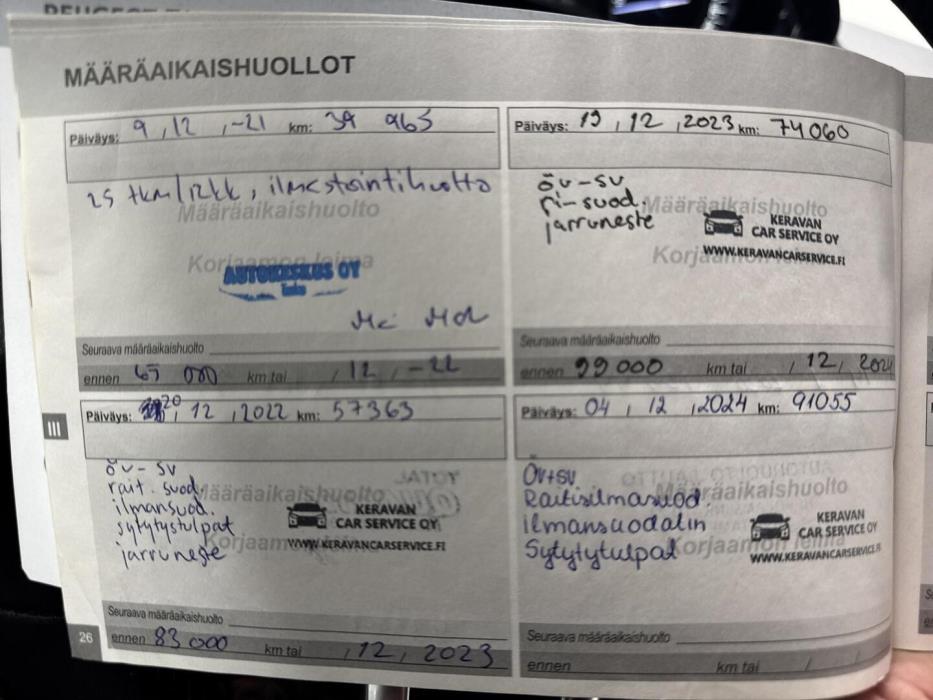 PEUGEOT
MÄÄRÄAIKAISHUOLLOT
Päiväys: 9 , 12 , -21 km: 39 965
25 tkm/12kk, ilmestointihuolto
Määräaikaishuolto
Korjaamon leima
AUTOKESKUS OY
Seuraava määräaikaishuolto
ennen 65 000 km tai / 12 , -22
Päiväys: 20 , 12 , 2022 km: 57363
öv-sv
rait. suod.
ilmansuod.
sytytystulpat
jarruneste
Määräaikaishuolto
Korjaamon
KERAVAN
CAR SERVICE OY
WWW.KERAVANCARSERVICE.FI
Seuraava määräaikaishuolto
ennen 83 000 km tai , 12 , 2023
26
III
Päiväys: 19 , 12 , 2023 km: 74060
öv-sv
ri-suod.
jarruneste
Määräaikaishuolto
Korjaamon
KERAVAN
CAR SERVICE OY
WWW.KERAVANCARSERVICE.FI
Seuraava määräaikaishuolto
ennen 99 000 km tai , 12 , 2024
Päiväys: 04 , 12 , 2024 km: 91055
Öv+sv
Raitisilmasuod.
ilmansuodatin
Sytytytulpat
Määräaikaishuolto
Korjaamon leima
KERAVAN
CAR SERVICE OY
WWW.KERAVANCARSERVICE.FI
Seuraava määräaikaishuolto
ennen km tai / /